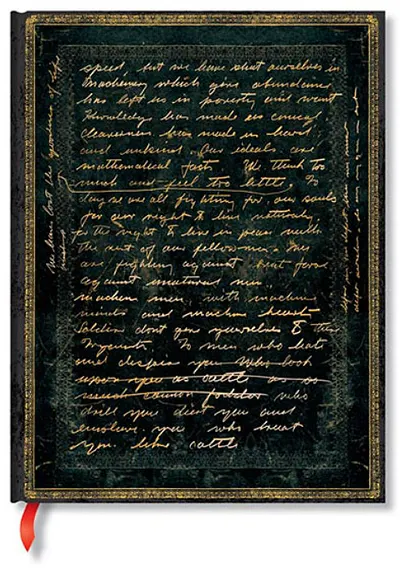 speed, but we have shut ourselves in
Machinery which gives abundance
has left us in poverty and want
Knowledge has made us cynical
cleverness has made us hard
and unkind. Our ideals are
mathematical facts. We think too
much and feel too little. To
day we are all fighting for our souls
for our right to live naturally,
for the right to live in peace with
the rest of our fellow men. We
are fighting against brute force
against unnatural men
machine men, with machine
minds and machine hearts
Soldiers dont give yourselves to these
Tyrants. To men who hate
and despise you who look
upon you as cattle as so
much cannon fodder who
drill you diet you and
enslave you who treat
you like cattle
We have lost the